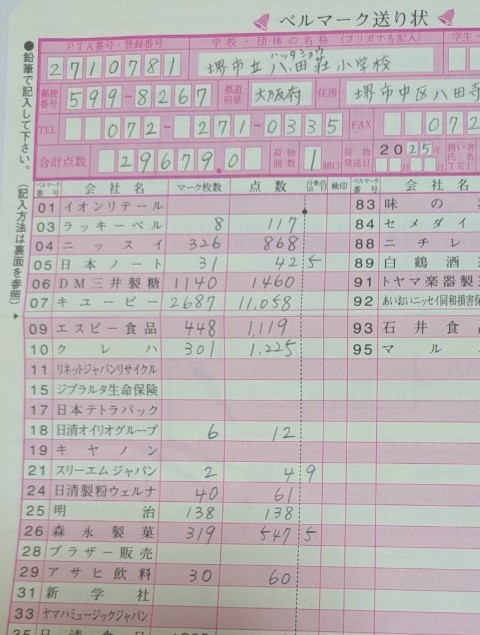 ベルマーク送り状
●鉛筆で記入して下さい。(記入方法は裏面を参照)
PTA番号・登録番号 学校・団体の名称 (フリガナも記入) 学生・
2710781 ハッタショウ
堺市立八田荘小学校
郵便番号 599-8267 都道府県 大阪府 住所 堺市中区八田寺
TEL 072-271-0335 FAX 072
合計点数 29679.0 荷物個数 1個口 荷物発送日 2025年 月 日 扱い者氏名TEL
ベルマーク番号 会社名 マーク枚数 点数 検印 ベルマーク番号 会社
01 イオンリテール 83 味の
03 ラッキーベル 8 117 84 セメダイ
04 ニッスイ 326 868 88 ニチレ
05 日本ノート 31 42 5 89 白鶴酒
06 DM三井製糖 1140 1460 91 トヤマ楽器製
07 キユーピー 2687 11,058 92 あいおいニッセイ同和損害保
09 エスビー食品 448 1,119 93 石井食
10 クレハ 301 1,225 95 マル
11 リネットジャパンリサイクル
15 ジブラルタ生命保険
17 日本テトラパック
18 日清オイリオグループ 6 12
19 キヤノン
21 スリーエムジャパン 2 4 9
24 日清製粉ウェルナ 40 61
25 明治 138 138
26 森永製菓 319 547 5
28 ブラザー販売
29 アサヒ飲料 30 60
31 新学社
33 ヤマハミュージックジャパン
35 日清食品